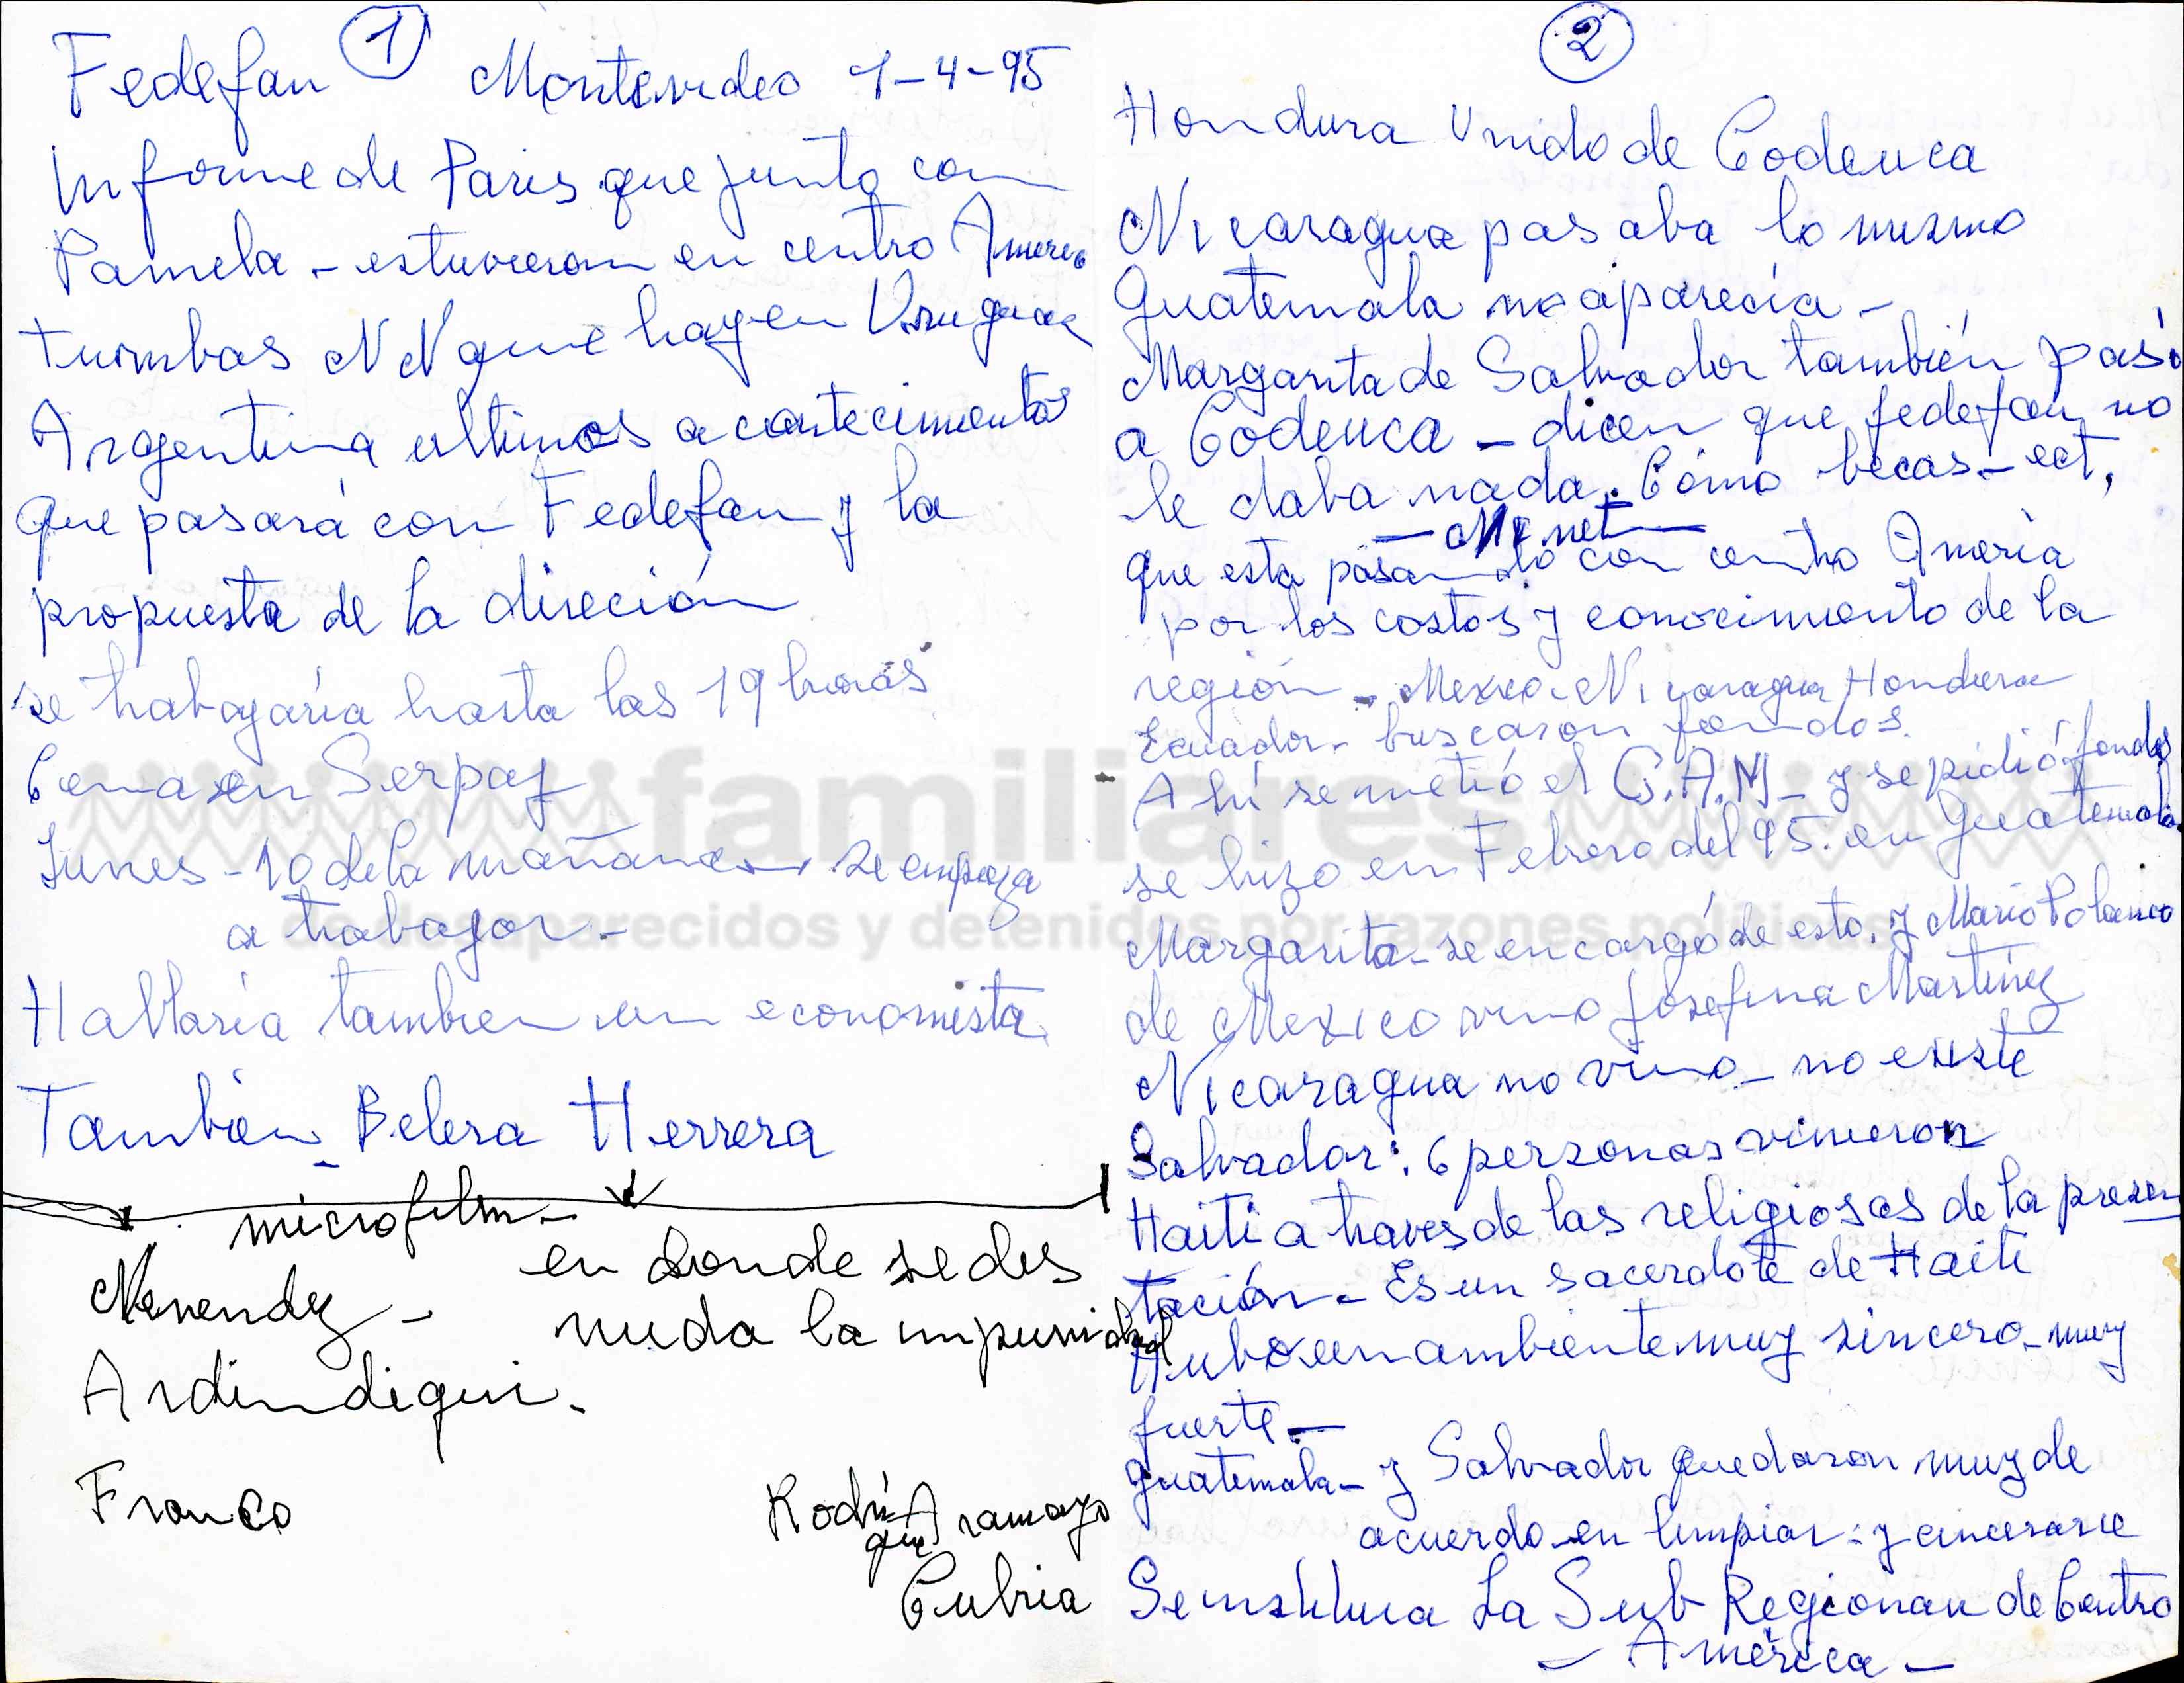 1
Fedefan Montevideo 1-4-95
Informe de Paris que junto con
Pamela - estuvieron en centro Americ
tumbas NN que hay en Uruguay
Argentina ultimos acontecimientos
que pasará con Fedefan y la
propuesta de la direción
se trabajaría hasta las 19 horas
Cena en Serpaj
Lunes - 10 de la mañana se empieza
a trabajar -
Hablaría tambien un economista
También - Belera Herrera
microfilm -
en donde se des
nuda la impunidad
Menendez -
Ardindigui -
Franco
Rodri
gue Aramayo
Cubria
2
Hondura Unido de Codeuca
Nicaragua pasaba lo mismo
Guatemala no aparecía -
Margarita de Salvador también pasó
a Codeuca - dicen que fedefan no
le daba nada. Cómo becas - ect,
que esta pasando con centro Ameria
por los costos y conocimiento de la
región - Mexico - Nicaragua Hondura
Ecuador - buscaron fondos.
Ahí se metió el G.A.M - y se pidió fondos
se hizo en Febrero del 95 : en Guatemala
Margarita - se encargó de esto. y Mario Polanco
de Mexico vino Josefina Martínez
Nicaragua no vino - no existe
Salvador : 6 personas vinieron
Haiti a traves de las religiosas de la presen
tación - Es un sacerdote de Haiti
Hubo un ambiente muy sincero - muy
fuerte -
guatemala - y Salvador quedaron muy de
acuerdo en limpiar : y
La Sub Regionan de Centro
- América -
familiares
de desaparecidos y detenidos por razones políticas